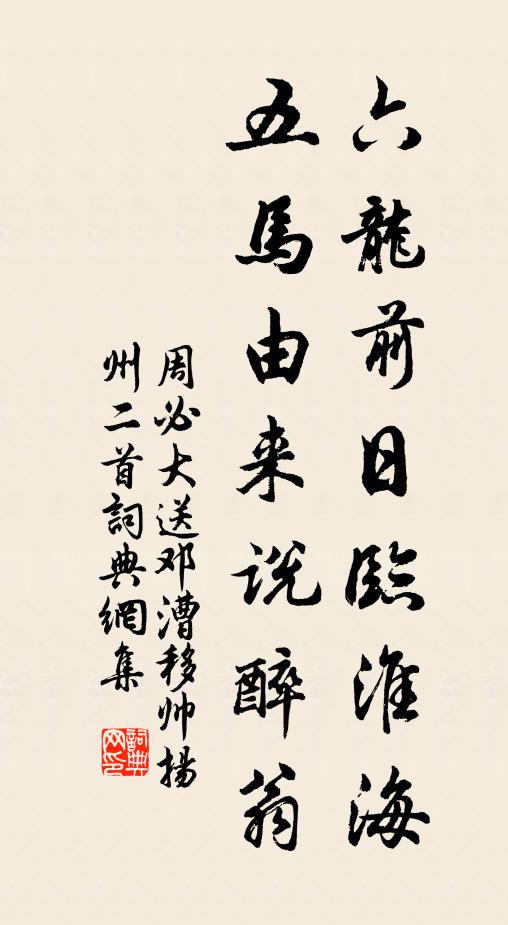 六龍前日臨淮海
五馬由来説醉翁
周必大送邓漕移帅揚
州二首詞典網集
詞典
网印